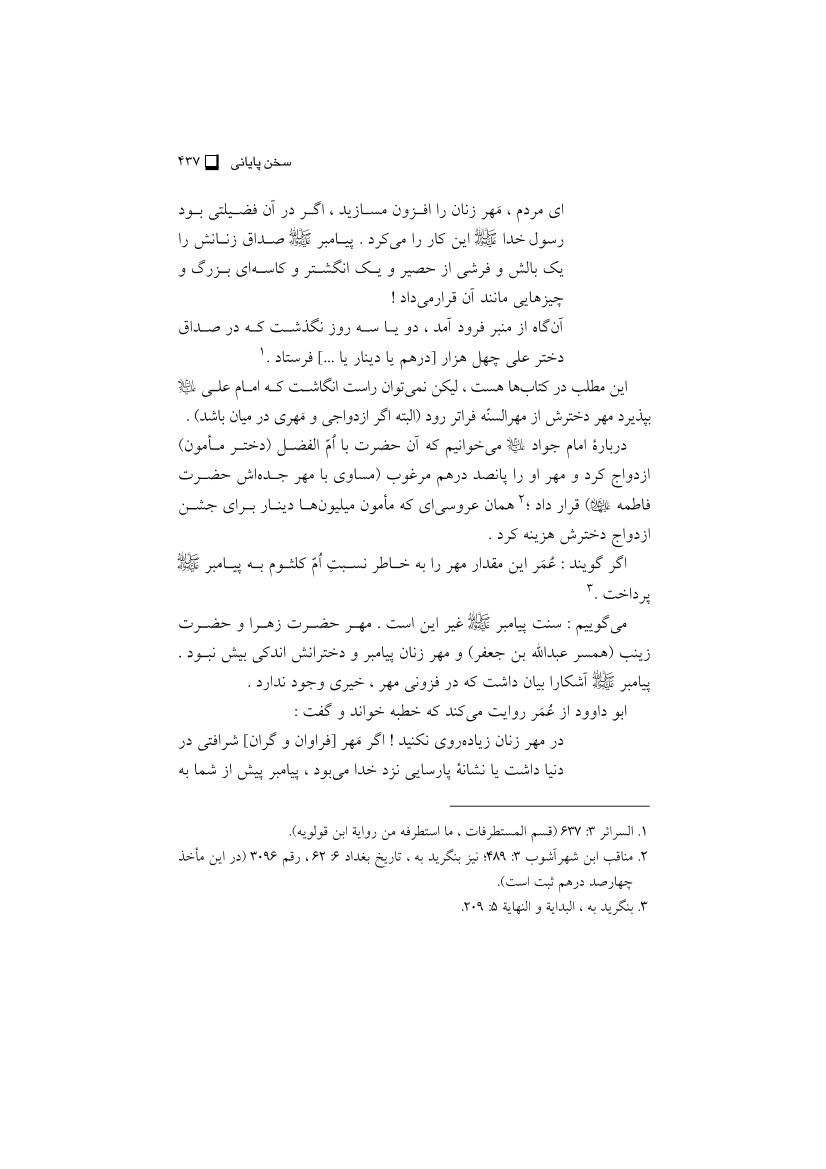 سخن پایانی ❏ ۴۳۷
ای مردم ، مَهر زنان را افزون مسازید ، اگر در آن فضیلتی بود
رسول خدا ﷺ این کار را می‌کرد . پیامبر ﷺ صداق زنانش را
یک بالش و فرشی از حصیر و یک انگشتر و کاسه‌ای بزرگ و
چیزهایی مانند آن قرارمی‌داد !
آن‌گاه از منبر فرود آمد ، دو یا سه روز نگذشت که در صداق
دختر علی چهل هزار [درهم یا دینار یا ...] فرستاد .۱
این مطلب در کتاب‌ها هست ، لیکن نمی‌توان راست انگاشت که امام علی علیه السلام
بپذیرد مهر دخترش از مهرالسنّه فراتر رود (البته اگر ازدواجی و مَهری در میان باشد) .
دربارهٔ امام جواد علیه السلام می‌خوانیم که آن حضرت با اُمّ الفضل (دختر مأمون)
ازدواج کرد و مهر او را پانصد درهم مرغوب (مساوی با مهر جده‌اش حضرت
فاطمه علیها السلام) قرار داد ؛۲ همان عروسی‌ای که مأمون میلیون‌ها دینار برای جشن
ازدواج دخترش هزینه کرد .
اگر گویند : عُمَر این مقدار مهر را به خاطر نسبتِ اُمّ کلثوم به پیامبر ﷺ
پرداخت .۳
می‌گوییم : سنت پیامبر ﷺ غیر این است . مهر حضرت زهرا و حضرت
زینب (همسر عبدالله بن جعفر) و مهر زنان پیامبر و دخترانش اندکی بیش نبود .
پیامبر ﷺ آشکارا بیان داشت که در فزونی مهر ، خیری وجود ندارد .
ابو داوود از عُمَر روایت می‌کند که خطبه خواند و گفت :
در مهر زنان زیاده‌روی نکنید ! اگر مَهر [فراوان و گران] شرافتی در
دنیا داشت یا نشانهٔ پارسایی نزد خدا می‌بود ، پیامبر پیش از شما به
۱. السرائر ۳: ۶۳۷ (قسم المستطرفات ، ما استطرفه من روایة ابن قولویه).
۲. مناقب ابن شهرآشوب ۳: ۴۸۹؛ نیز بنگرید به ، تاریخ بغداد ۶: ۶۲ ، رقم ۳۰۹۶ (در این مأخذ
چهارصد درهم ثبت است).
۳. بنگرید به ، البدایة و النهایة ۵: ۲۰۹.